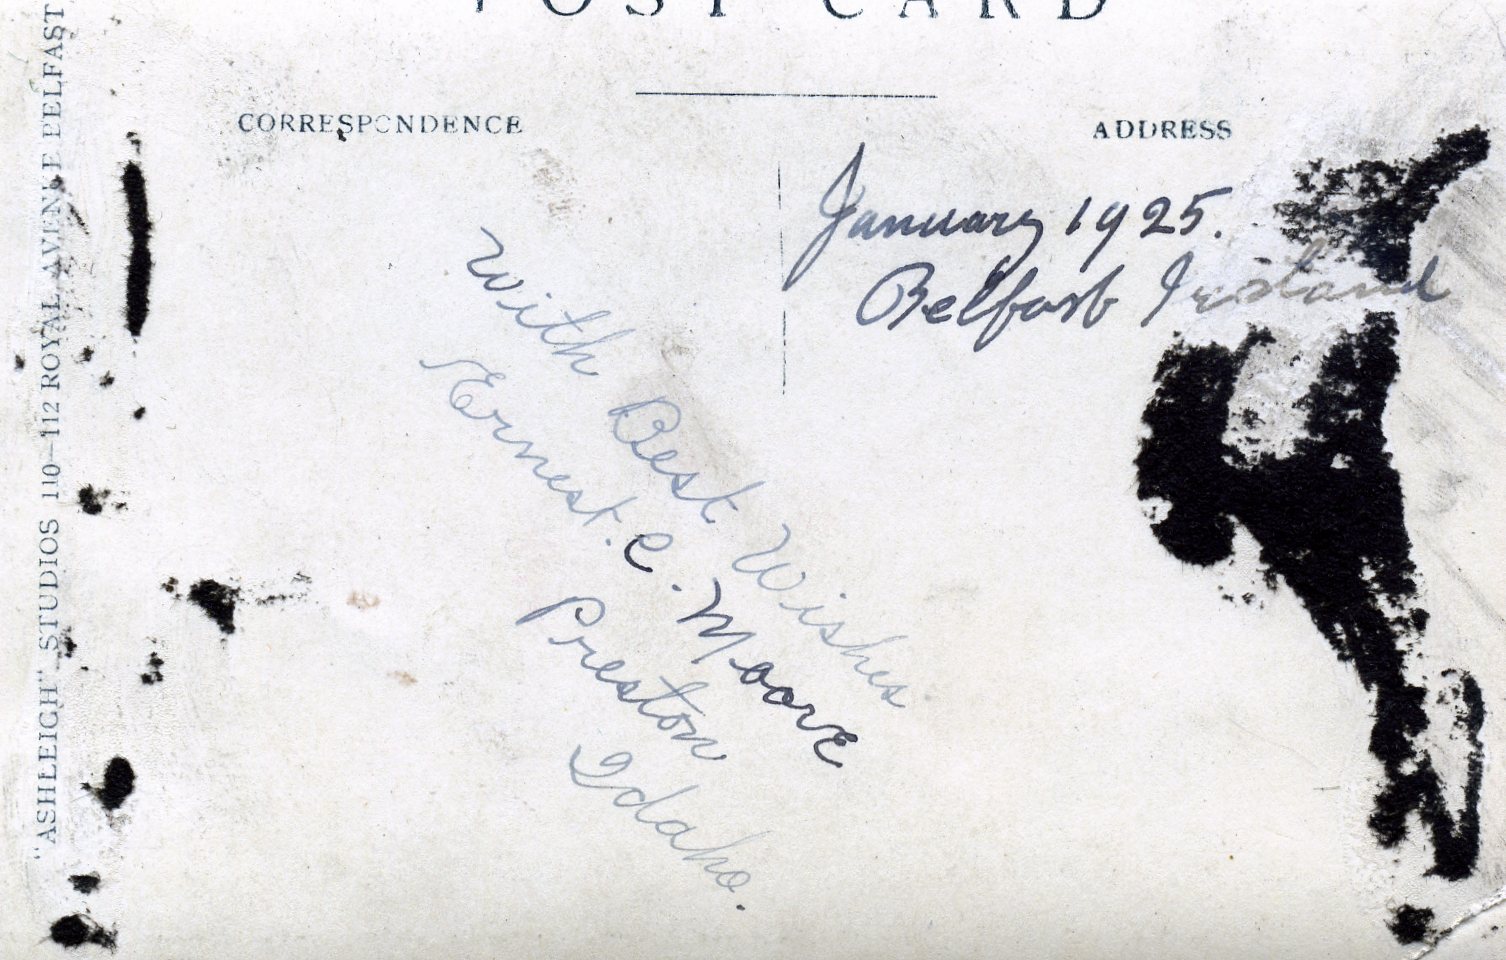 POST CARD
CORRESPONDENCE
ADDRESS
January 1925.
Belfast Ireland
With Best Wishes
Ernest. C. Moore
Preston
Idaho.
"ASHLEIGH" STUDIOS 110-112 ROYAL AVENUE BELFAST